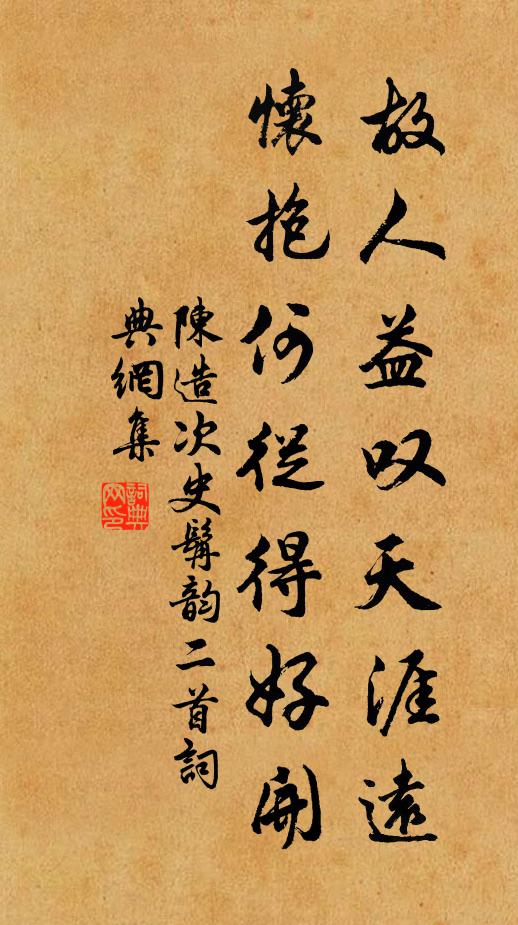 故人益叹天涯遠
懷抱何從得好開
陳造次史髯韵二首詞
典網集
詞典網印